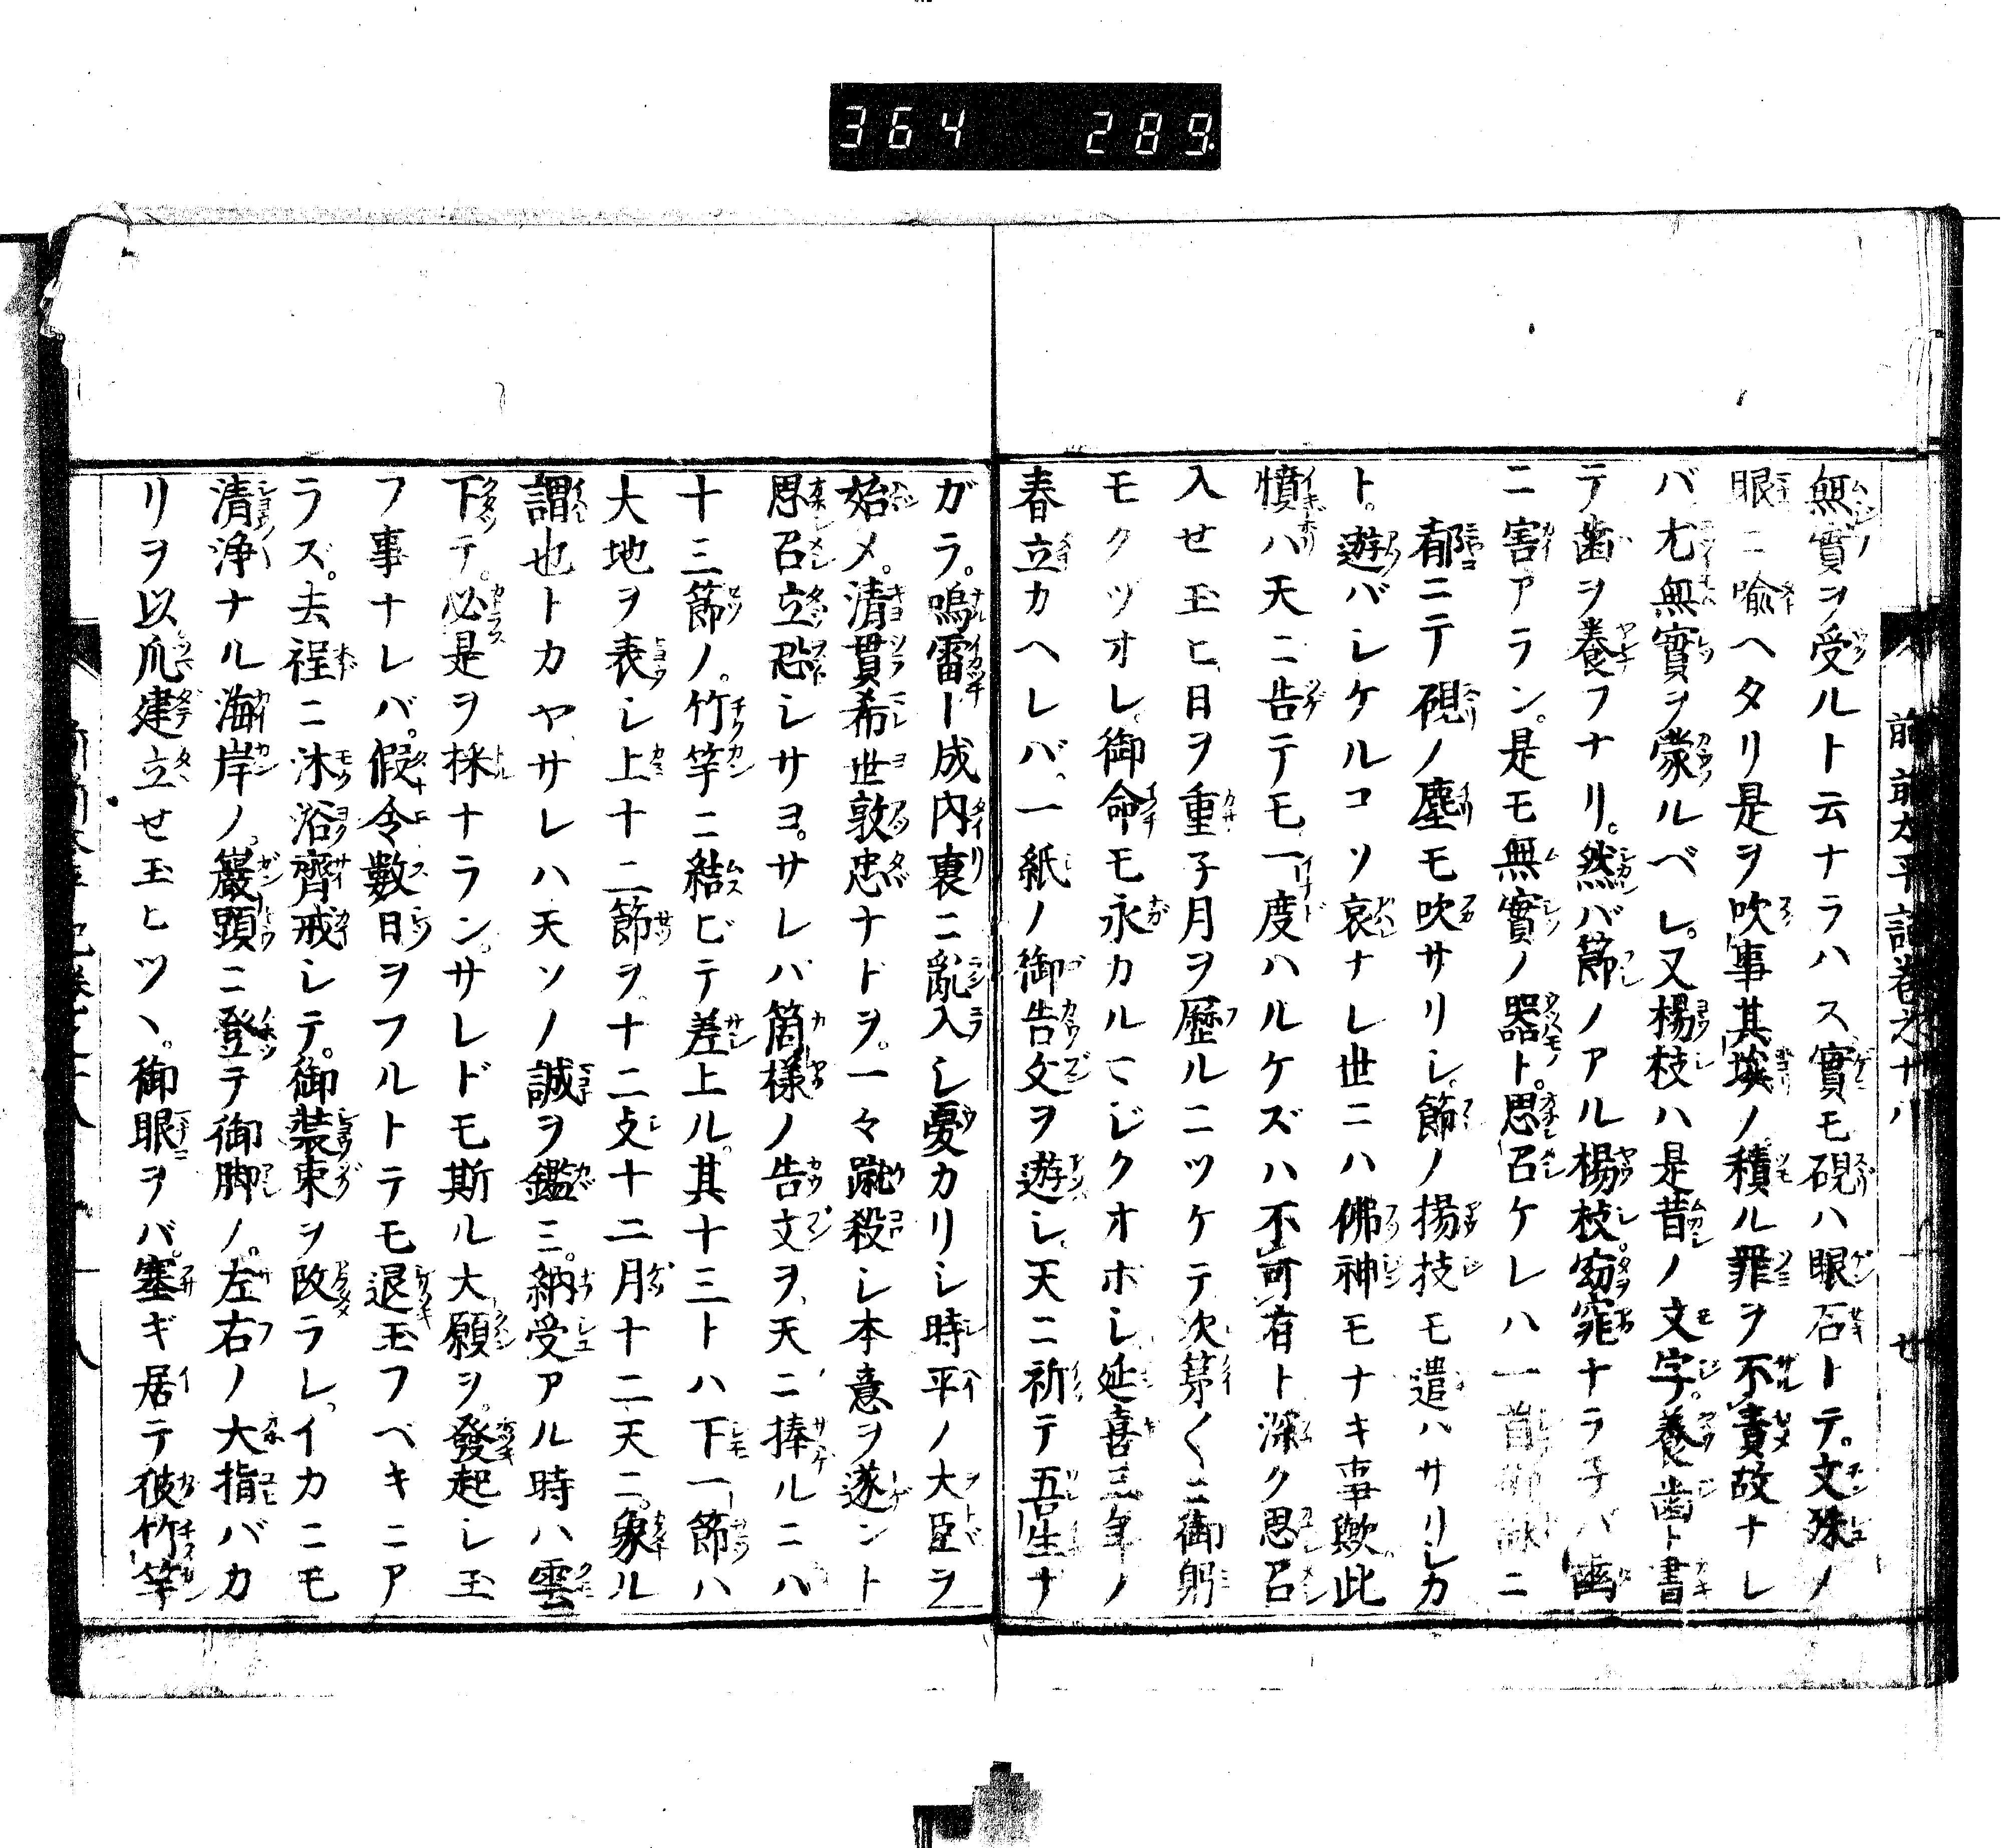 364 289
前前太平記巻之十八 廿
無實ヲ受ルト云ナラハス實モ硯ハ眼石トテ。文殊ノ
眼ニ喩ヘタリ是ヲ吹事其埃ノ積ル罪ヲ不責故ナレ
バ尤無實ヲ蒙ルベレ。又楊枝ハ是昔ノ文字。養歯ト書
テ歯ヲ養フナリ。然バ節ノアル楊枝。窈窕ナラ子バ歯
ニ害アラン。是モ無實ノ器ト。思召ケレハ一首御詠ニ
都ニテ硯ノ塵モ吹サリシ。節ノ揚技モ遣ハサリシカ
ト。遊バシケルコソ哀ナレ世ニハ佛神モナキ事歟此
憤ハ天ニ告テモ一度ハルケズハ不可有ト深ク思召
入せ玉ヒ日ヲ重子月ヲ歴ルニツケテ次第〱ニ御躬
モクヅオレ御命モ永カルマジクオホシ延喜三年ノ
春立カヘレバ。一紙ノ御告文ヲ遊シ。天ニ祈テ五生ナ
ガラ。鳴雷ト成内裏ニ亂入シ憂カリシ時平ノ大臣ヲ
始メ。清貫希世敦忠ナドヲ。一々蹴殺シ本意ヲ遂ント
思召立忍シサヨ。サレバ箇様ノ告文ヲ天ニ捧ルニハ
十三節ノ。竹竿ニ結ビテ差上ル。其十三トハ下一節ハ
大地ヲ表シ上十二節ヲ十二支十二月十二天ニ。象ル
謂也トカヤサレハ天ソノ誠ヲ鑑ミ。納受アル時ハ雲
下テ。必是ヲ採ナラン。サレドモ斯ル大願ヲ。發起シ玉
フ事ナレバ。假令數日ヲフルトテモ退玉フベキニア
ラズ。去程ニ沐浴齊戒シテ。御装束ヲ改ラレ。イカニモ
清浄ナル海岸ノ。巖頭ニ登テ御脚ノ。左右ノ大指バカ
リヲ以爪建立せ玉ヒツヽ。御眼ヲバ。塞ギ居テ彼竹竿